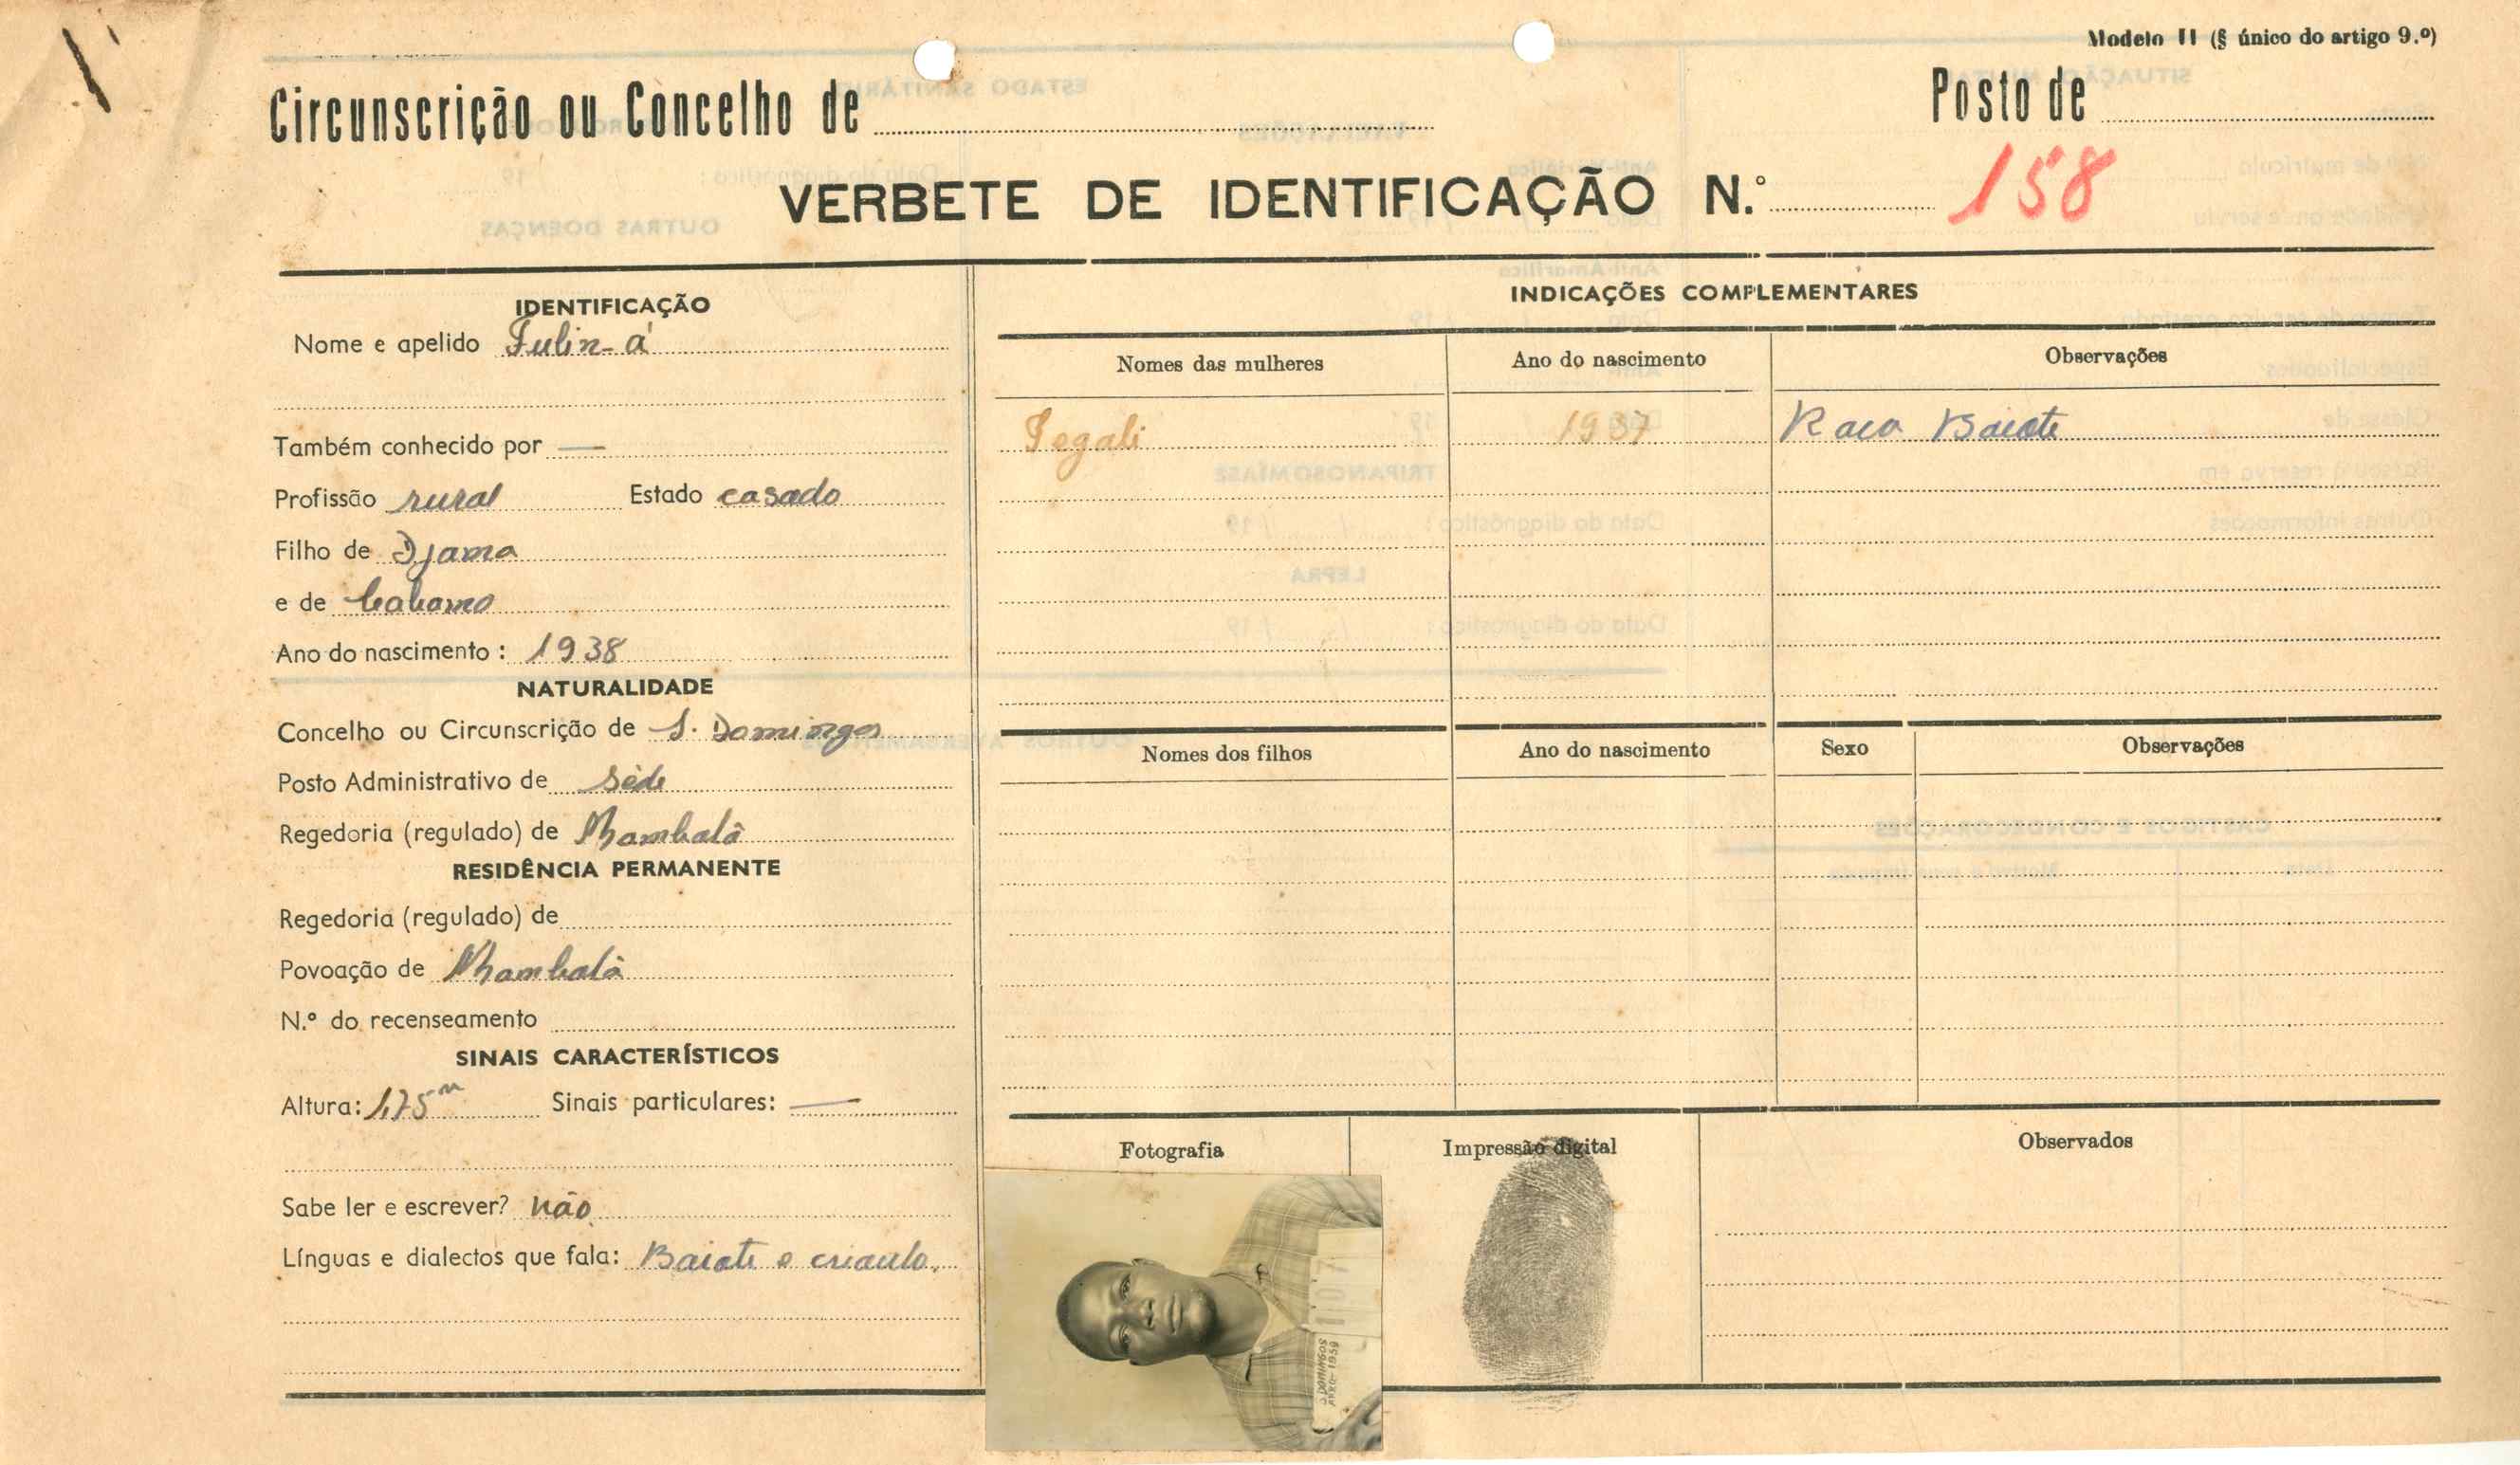 Modelo II (§ único do artigo 9.º)
Circunscrição ou Concelho de
Posto de
VERBETE DE IDENTIFICAÇÃO N.º 158
IDENTIFICAÇÃO
Nome e apelido
Também conhecido por —
Profissão rural Estado casado
Filho de Djama
e de
Ano do nascimento: 1938
NATURALIDADE
Concelho ou Circunscrição de S. Domingos
Posto Administrativo de Séde
Regedoria (regulado) de Nhambalã
RESIDÊNCIA PERMANENTE
Regedoria (regulado) de
Povoação de Nhambalã
N.º do recenseamento
SINAIS CARACTERÍSTICOS
Altura: 1,75 m Sinais particulares: —
Sabe ler e escrever? não
Línguas e dialectos que fala: Baiote e crioulo.
INDICAÇÕES COMPLEMENTARES
Nomes das mulheres Ano do nascimento Observações
Segali 1937 Raça Baiote
Nomes dos filhos Ano do nascimento Sexo Observações
Fotografia Impressão digital Observados
S. DOMINGOS
1959